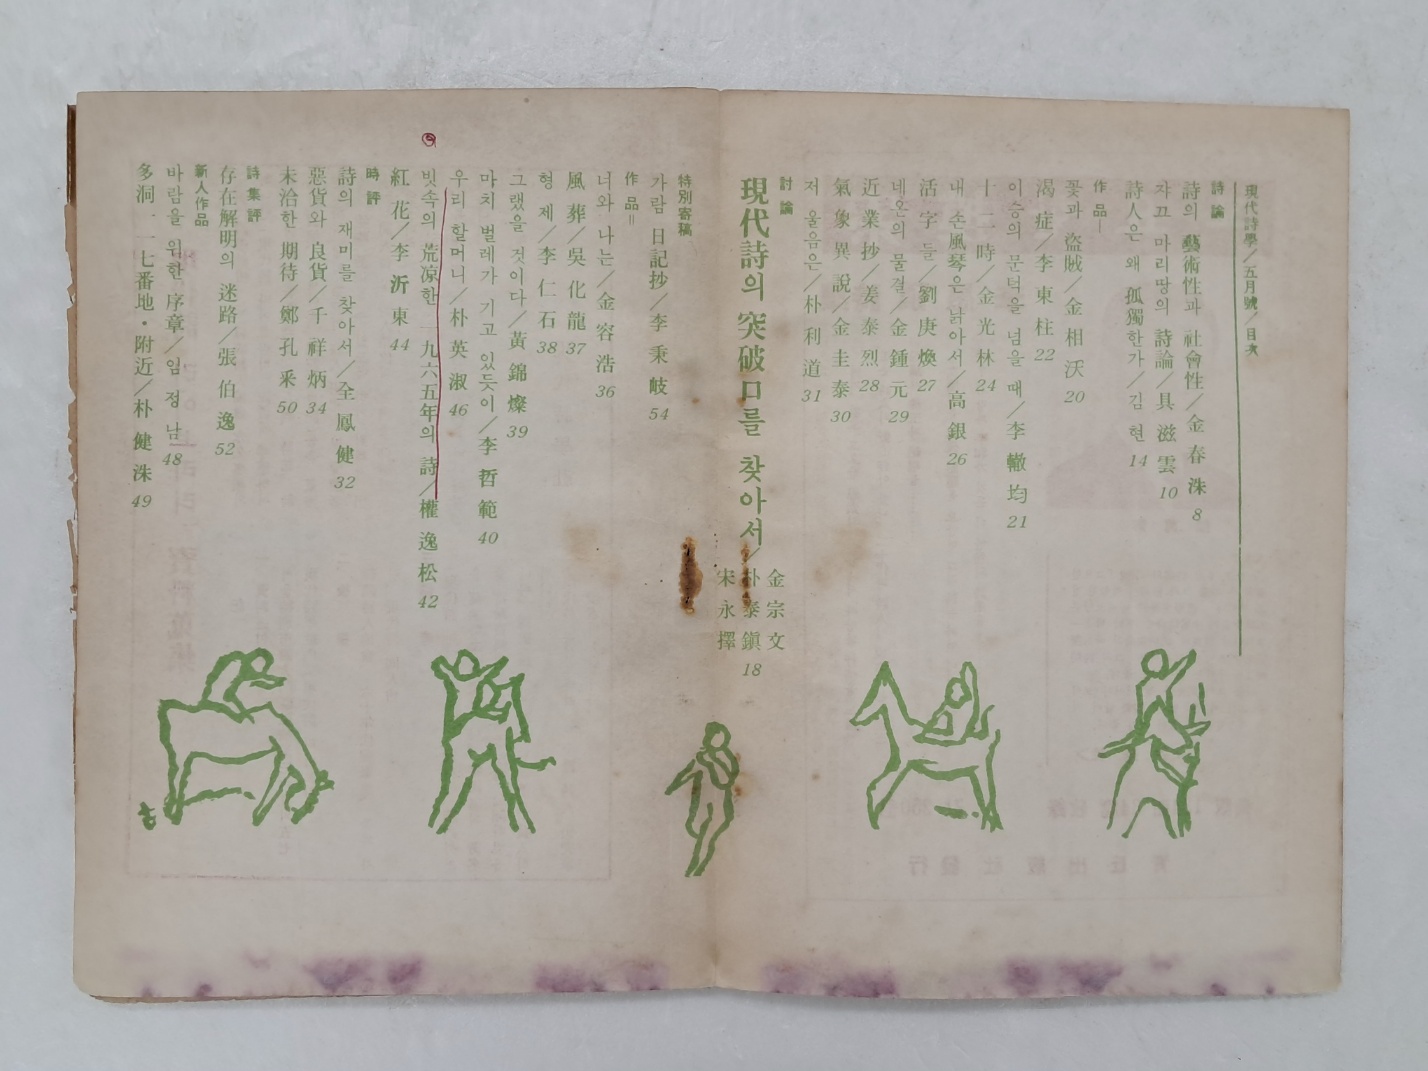 現代詩學／五月號／目次
詩論
詩의 藝術性과 社會性／金春洙 8
쟈끄 마리땅의 詩論／具滋雲 10
詩人은 왜 孤獨한가／김현 14
作品Ⅰ
꽃과 盜賊／金相沃 20
渴症／李東柱 22
이승의 문턱을 넘을 때／李轍均 21
十二時／金光林 24
내 손風琴은 낡아서／高銀 26
活字들／劉庚煥 27
네온의 물결／金鍾元 29
近業抄／姜泰烈 28
氣象異說／金圭泰 30
저 울음은／朴利道 31
討論
現代詩의 突破口를 찾아서／金宗文 朴泰鎭 宋永擇 18
特別寄稿
가람 日記抄／李秉岐 54
作品Ⅱ
너와 나는／金容浩 36
風葬／吳化龍 37
형제／李仁石 38
그랬을 것이다／黃錦燦 39
마치 벌레가 기고 있듯이／李哲範 40
우리 할머니／朴英淑 46
빗속의 荒凉한 一九六五年의 詩／權逸松 42
紅花／李沂東 44
時評
詩의 재미를 찾아서／全鳳健 32
惡貨와 良貨／千祥炳 34
未洽한 期待／鄭孔采 50
詩集評
存在解明의 迷路／張伯逸 52
新人作品
바람을 위한 序章／임정남 48
多洞一一七番地・附近／朴健洙 49